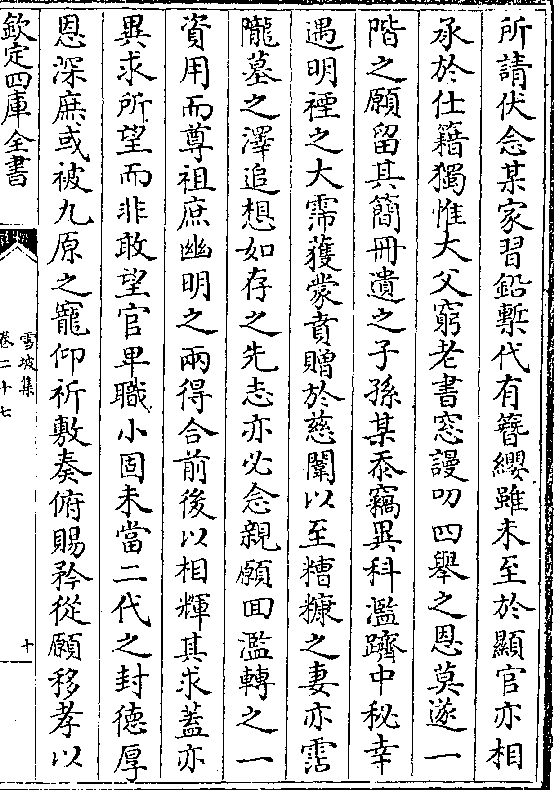 所請伏念某家習鉛槧代有簪纓雖未至於顯官亦相
承於仕籍獨惟大父窮老書窓謾叨四舉之恩莫遂一
階之願留其簡冊遺之子孫某忝竊異科濫躋中秘幸
遇明禋之大霈獲蒙賁贈於慈闈以至糟糠之妻亦霑
隴墓之澤追想如存之先志亦必念親願回濫轉之一
資用而尊祖庶幽明之兩得合前後以相輝其求蓋亦
異求所望而非敢望官卑職小固未當二代之封德厚
恩深庶或被九原之寵仰祈敷奏俯賜矜從願移孝以
欽定四庫全書
雪坡集
卷二十七
十